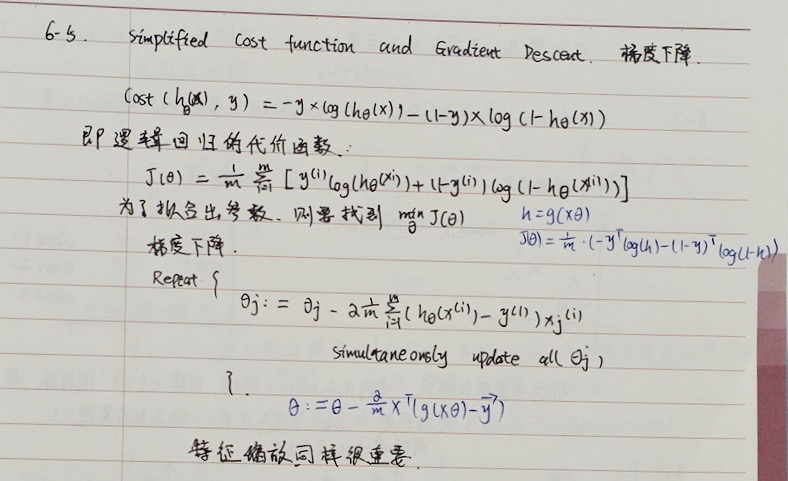 6-5. Simplified Cost function and Gradient Descent. 梯度下降.
Cost (hθ(x), y) = -y × log(hθ(x)) - (1-y) × log (1-hθ(x))
即逻辑回归的代价函数:
J(θ) = 1/m Σ_{i=1}^{m} [y⁽ⁱ⁾ log(hθ(xⁱ)) + (1-y⁽ⁱ⁾) log (1-hθ(x⁽ⁱ⁾))]
为了拟合出参数. 则要找到 min_θ J(θ)
h = g(xθ)
J(θ) = 1/m · (-yᵀlog(h) - (1-y)ᵀ log(1-h))
梯度下降.
Repeat {
θj := θj - α 1/m Σ_{i=1}^{m} (hθ(x⁽ⁱ⁾) - y⁽ⁱ⁾) xj⁽ⁱ⁾
simultaneously update all θj)
}.
θ := θ - α/m xᵀ(g(xθ) - y⃗)
特征缩放同样很重要.